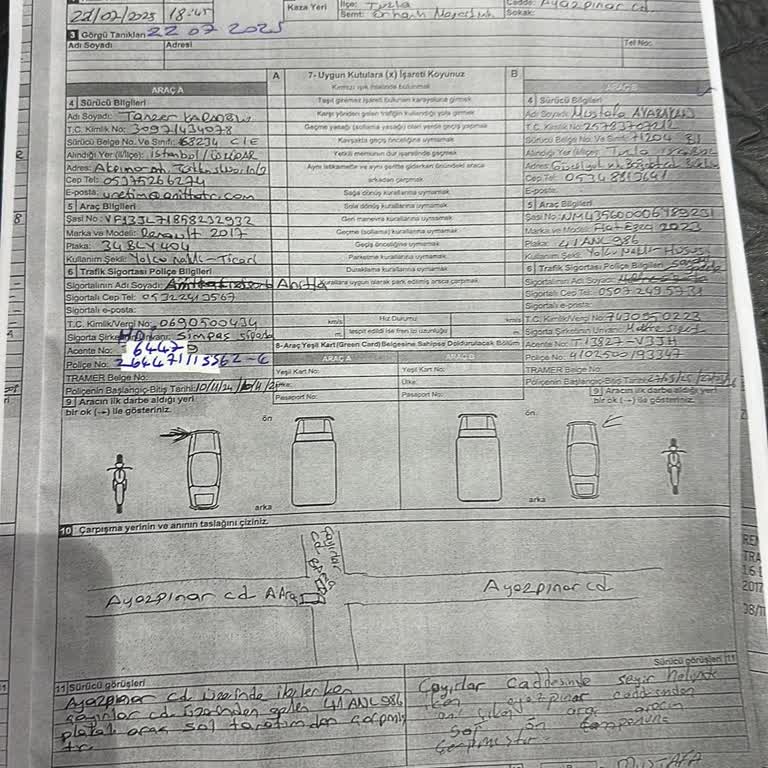 22/07/2025 18:45 Kaza Yeri İlçe: Tuzla Cadde: Ayazpınar cd.
Semt: Orhanlı Sokak:
3 Görgü Tanıkları 22 07 2025
Adı Soyadı Adresi Tel No:
ARAÇ A
4 Sürücü Bilgileri
Adı Soyadı: Tanzer
T.C. Kimlik No: 30971434078
Sürücü Belge No. Ve Sınıfı: 68234 C1E
Alındığı Yer (İl/İlçe): istanbul / ÜSKÜDAR
Adres:
Cep Tel: 05375266274
E-posta:
5 Araç Bilgileri
Şasi No: VF133L71858232932
Marka ve Modeli: Renault 2017
Plaka: 34 BLY 404
Kullanım Şekli: Yolcu Nakli - Ticari
6 Trafik Sigortası Poliçe Bilgileri
Sigortalının Adı Soyadı:
Sigortalı Cep Tel: 05322413567
Sigortalı e-posta:
T.C. Kimlik/Vergi No: 0690500434
Sigorta Şirketinin Unvanı: Simpaş sigorta
Acente No:
Poliçe No:
TRAMER Belge No:
Poliçenin Başlangıç-Bitiş Tarihi: 10/11/24
9 Aracın ilk darbe aldığı yeri
bir ok (→) ile gösteriniz.
A 7- Uygun Kutulara (x) İşareti Koyunuz B
Kırmızı ışık ihlalinde bulunmak
Taşıt giremez işareti bulunan karayoluna girmek
Karşı yönden gelen trafiğin kullandığı yola girmek
Geçme yasağı (sollama yasağı) olan yerde geçiş yapmak
Kavşakta geçiş önceliğine uymamak
Yetkili memurun dur işaretinde geçmek
Aynı istikamette ve aynı şeritte giderken önündeki araca
arkadan çarpmak
Sağa dönüş kurallarına uymamak
Sola dönüş kurallarına uymamak
Geri manevra kurallarına uymamak
Geçme (sollama) kurallarına uymamak
Geçiş önceliğine uymamak
Parketme kurallarına uymamak
Duraklama kurallarına uymamak
Kurallara uygun olarak park edilmiş araca çarpmak
km/s Hız Durumu: km/s
m. tespit edildi ise fren izi uzunluğu m.
8-Araç Yeşil Kart (Green Card) Belgesine Sahipse Doldurulacak Bölüm
ARAÇ A ARAÇ B
Yeşil Kart No: Yeşil Kart No:
Ülke: Ülke:
Pasaport No: Pasaport No:
ARAÇ B
4 Sürücü Bilgileri
Adı Soyadı: Mustafa
T.C. Kimlik No: 25783707212
Sürücü Belge No. Ve Sınıfı: 71204 B1
Alındığı Yer (İl/İlçe): Tuzla
Adres:
Cep Tel: 0534 8813641
E-posta:
5 Araç Bilgileri
Şasi No: NM435600006Y89231
Marka ve Modeli: Fiat Egea 2023
Plaka: 41 ANL 986
Kullanım Şekli: Yolcu Nakli - Hususi
6 Trafik Sigortası Poliçe Bilgileri
Sigortalının Adı Soyadı:
Sigortalı Cep Tel: 0507 2495731
Sigortalı e-posta:
T.C. Kimlik/Vergi No: 7430950223
Sigorta Şirketinin Unvanı:
Acente No: T13827-V33H
Poliçe No: 4102500193347
TRAMER Belge No:
Poliçenin Başlangıç-Bitiş Tarihi:
9 Aracın ilk darbe aldığı yeri
bir ok (→) ile gösteriniz.
ön ön
arka arka
10 Çarpışma yerinin ve anının taslağını çiziniz.
Çayırlar cd.
B Araç
Ayazpınar cd A Araç Ayazpınar cd
11 Sürücü görüşleri
Ayazpınar cd. üzerinde ilerlerken
çayırlar cd. üzerinden gelen 41 ANL 986
plakalı araç sol tarafımdan çarpmış
tır.
Sürücü görüşleri 11
Çayırlar Caddesinde seyir halinde
iken ayazpınar caddesinden
ani çıkan araç aracın
sol ön tamponuna
çarpmıştır.
MUSTAFA